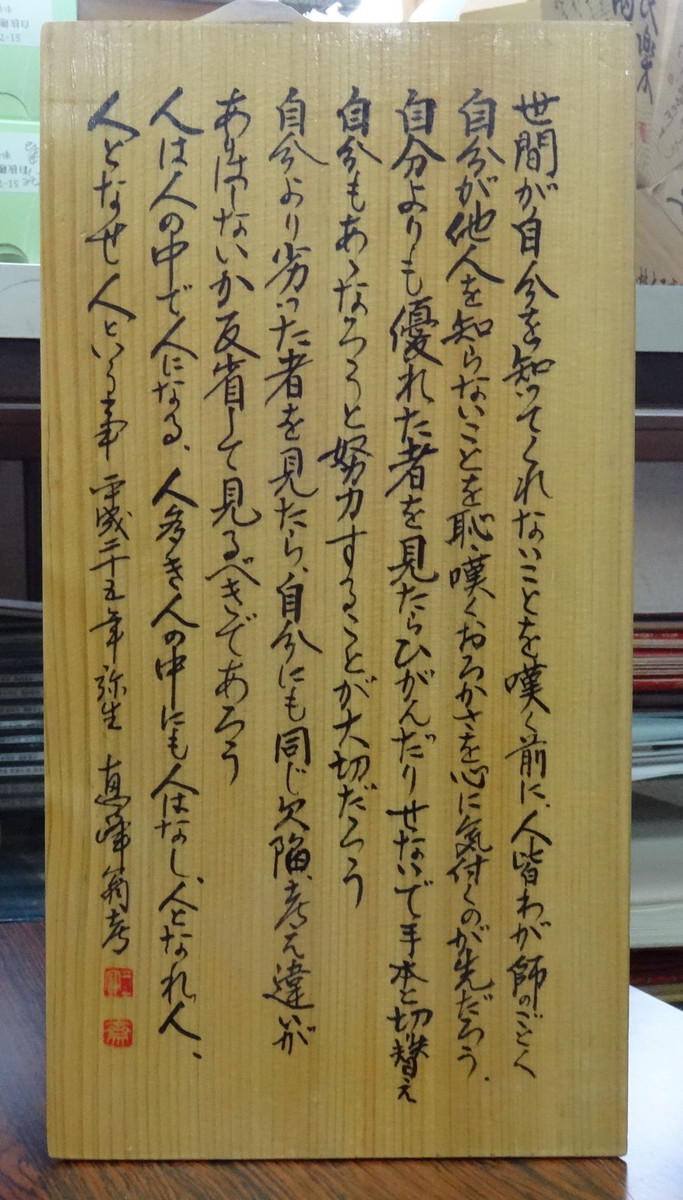 世間が自分を知ってくれないことを嘆く前に、人皆わが師のごとく
自分が他人を知らないことを恥、嘆く、おろかさを心に気付くのが先だろう.
自分よりも優れた者を見たらひがんだりせないで手本と切り替え
自分もあゝなろうと努力することが大切だろう
自分より劣った者を見たら、自分にも同じ欠陥、考え違いが
ありはしないか反省して見るべきであろう
人は人の中で人になる、人多き人の中にも人はなし、人となれ人、
人となせ人という事 平成二十五年弥生